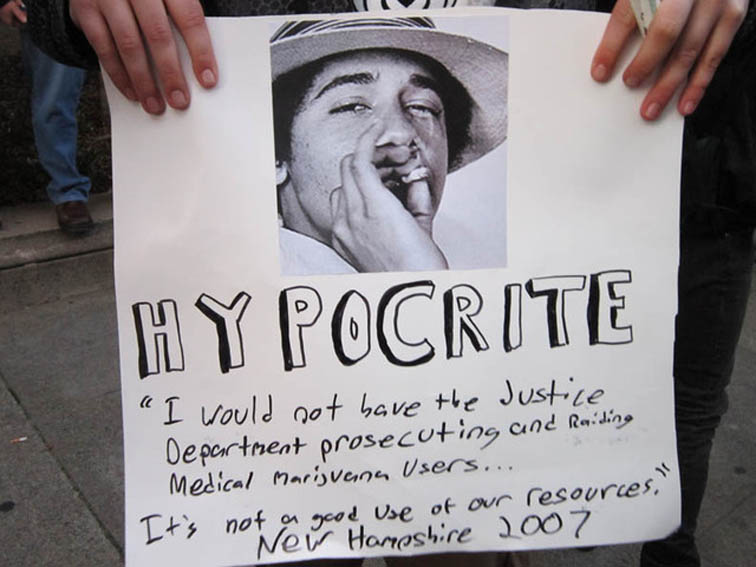 HYPOCRITE
"I would not have the Justice
Department prosecuting and Raiding
Medical Marijuana Users...
It's not a good use of our resources."
New Hampshire 2007